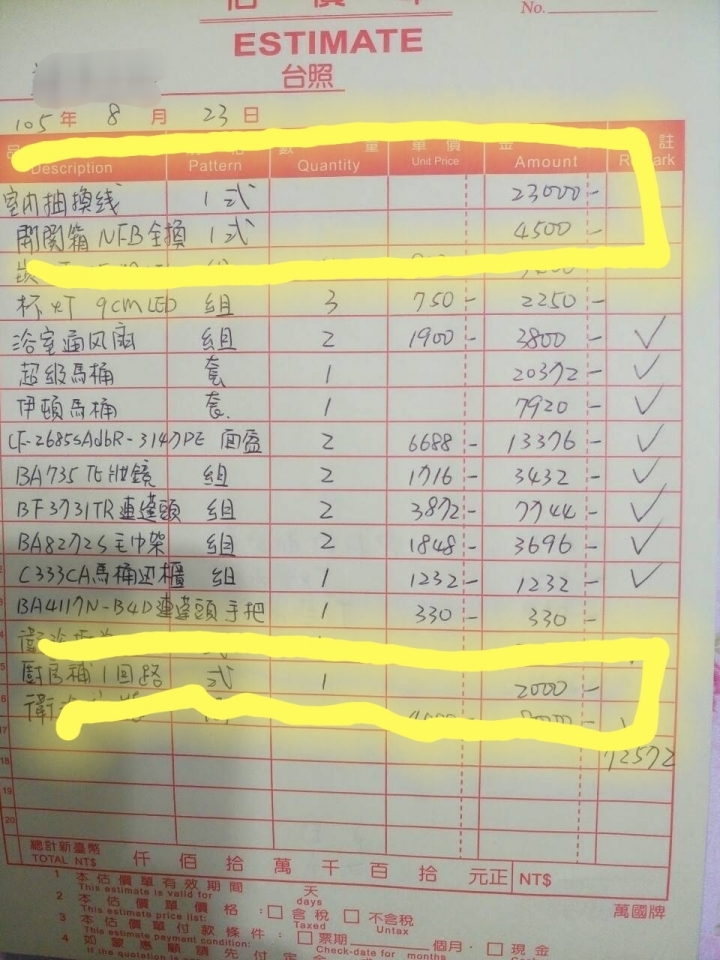 No.
ESTIMATE
台照
105年 8月 23日
Description Pattern 量 Quantity 單價 Unit Price 金 Amount 註 Remark
室內抽換线 1式 23000-
開関箱 NFB全換 1式 4500-
杯灯 9cm LED 組 3 750- 2250-
浴室通风扇 組 2 1900- 3800- ✓
超級馬桶 套 1 20372- ✓
伊頓馬桶 套 1 7920- ✓
面盆 2 6688- 13376- ✓
BA735 化妝鏡 組 2 1716- 3432- ✓
BF3731TR蓮蓬頭 組 2 3872- 7744- ✓
BA8272S毛巾架 組 2 1848- 3696- ✓
C333CA馬桶边櫃 組 1 1232- 1232- ✓
BA4117N-B4D蓮蓬頭手把 1 330- 330-
廚房補1回路 式 1 2000-
17
72572
18
19
20
總計新臺幣 TOTAL NT$ 仟 佰 拾 萬 千 百 拾 元正 NT$
1 本估價單有效期間 天
This estimate is valid for days
2 本估價單價格：□含稅 □不含稅
This estimate price list: Taxed Untax
萬國牌
3 本估價單付款條件：□票期 個月·□現金
This estimate payment condition: Check-date for months
4 如蒙惠顧請先付定金
If the quotation is